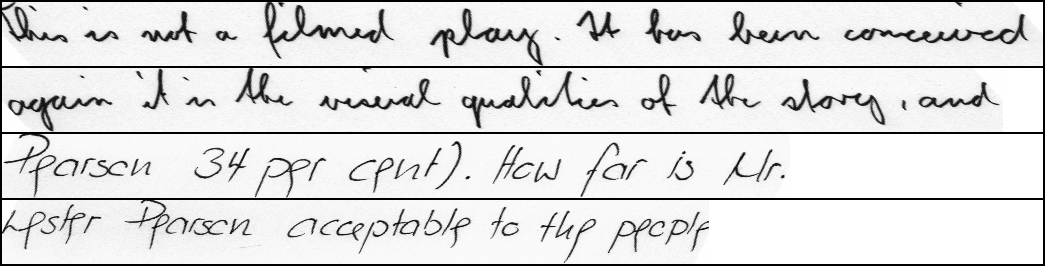 This is not a filmed play. It has been conceived
again it is the visual qualities of the story, and
Pearson 34 per cent). How far is Mr.
Lester Pearson acceptable to the people